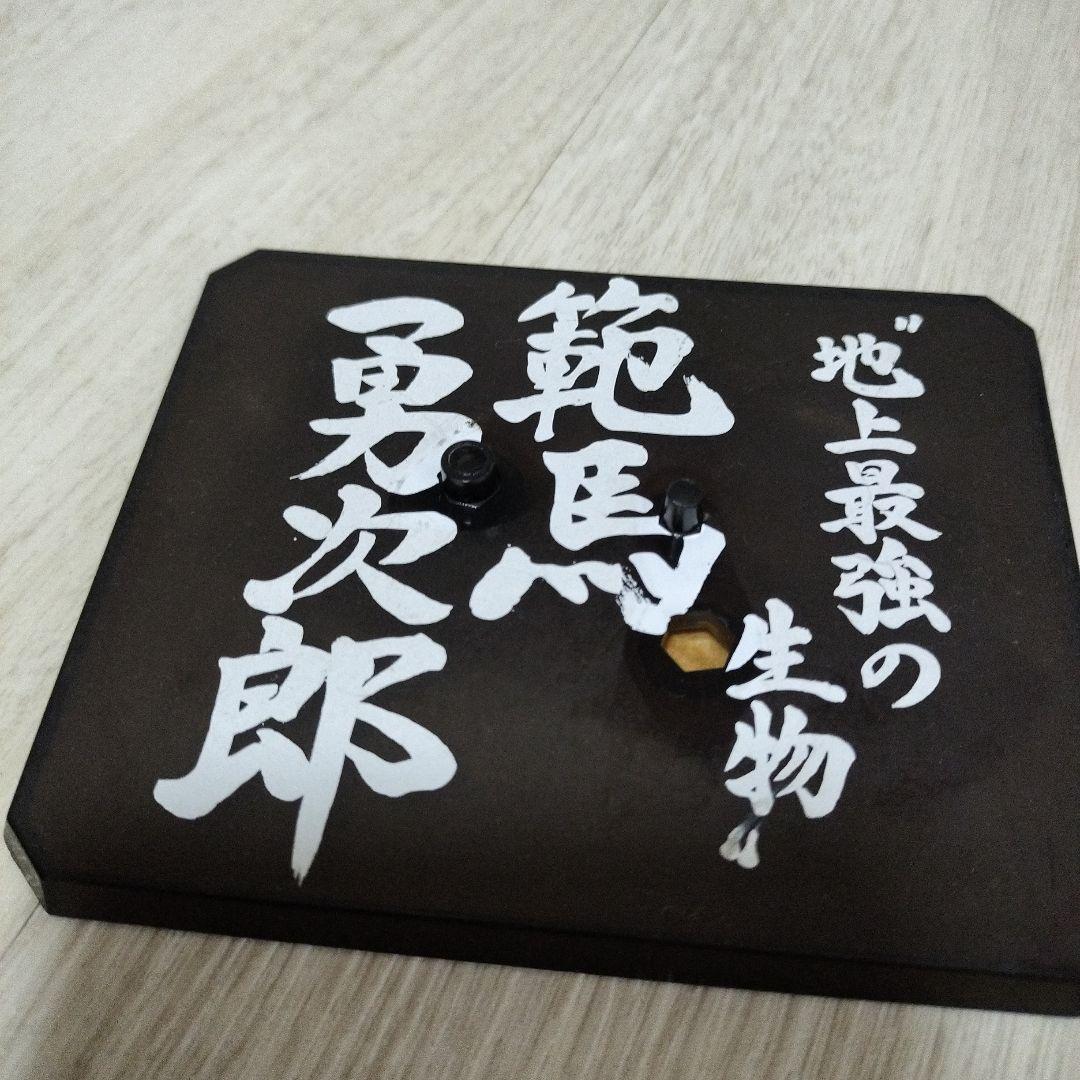 "地上最強の
生物"
範馬
勇次郎